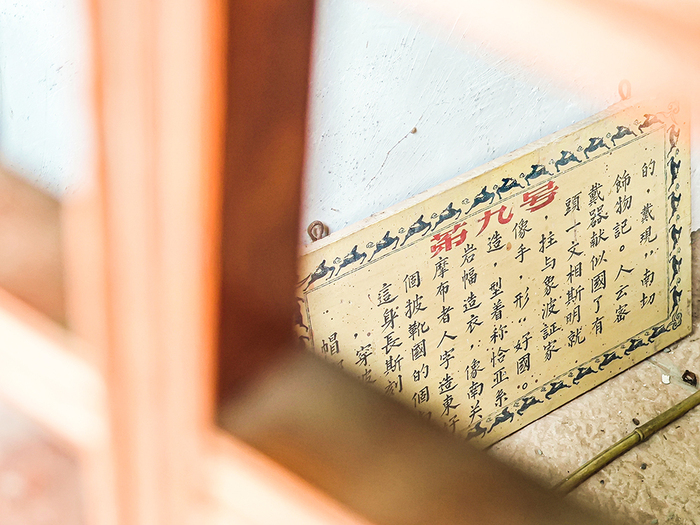 第九号
這個摩岩造像，頭戴飾的
帽。身披布幅，手柱十路物，戴
穿長靴者造型，与文献記現
波斯國人衣着形象相似。"
刻的字，称"波斯國人南
個造像恰好証明了云切
東南亚國家就有密
关系。